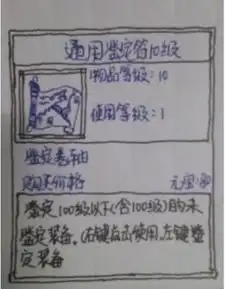 通用鉴定符10级
物品等级：10
使用等级：1
鉴定卷轴
购买价格
鉴定100级以下(含100级)的未
鉴定装备。(右键点击使用,左键鉴
定装备